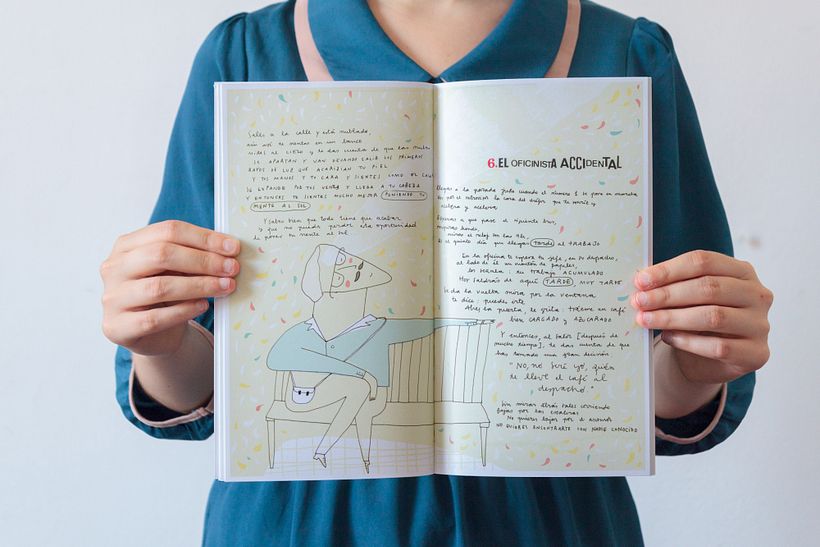 Sales a la calle y está nublado,
aún así te sientas en un banco
MIRAS AL CIELO y te das cuenta de que las nubes
SE APARTAN Y VAN DEJANDO CAER LOS PRIMEROS
RAYOS DE LUZ QUE ACARICIAN TU PIEL
Y TUS MANOS Y TU CARA Y SIENTES COMO EL CALOR
SE EXPANDE POR TUS VENAS Y LLEGA A TU CABEZA
Y ENTONCES TE SIENTES MUCHO MEJOR PONIENDO TU
MENTE AL SOL.
Y sabes bien que todo tiene que acabar
y que no puedes perder esta oportunidad
de poner tu mente al sol.
6. EL OFICINISTA ACCIDENTAL
llegas a la parada justo cuando el número 1 se pone en marcha
ves por el retrovisor la cara del chófer que te sonríe y
acelera y acelera.
Esperas a que pase el siguiente bus,
respiras hondo,
miras el reloj son las
Es el quinto día que llegas tarde al TRABAJO
En la oficina te espera tu jefe, en su despacho,
al lado de él un montón de papeles,
los señala: su trabajo ACUMULADO
Hoy saldrás de aquí TARDE MUY TARDE
Se da la vuelta mira por la ventana
te dice: puedes irte
Abres la puerta, te grita: tráeme un café
bien CARGADO y AZUCARADO
Y entonces, al salir [después de
mucho tiempo], te das cuenta de que
has tomado una gran decisión.
"NO, no seré yo, quién
te lleve el café al
despacho"
Sin mirar atrás sales corriendo
bajas por las escaleras
No quieres bajar por el ascensor
NO QUIERES ENCONTRARTE CON NADIE CONOCIDO